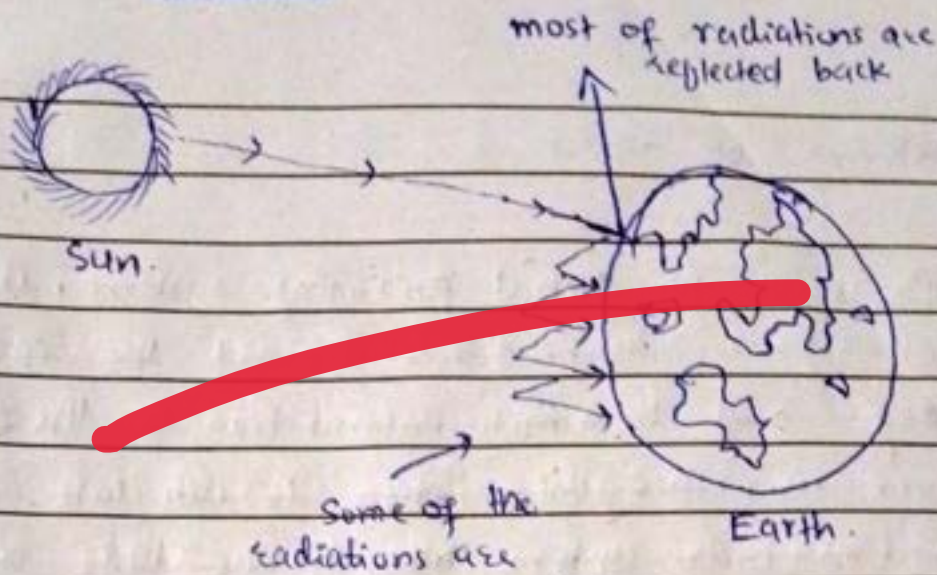 most of radiations are
reflected back
Sun.
Some of the
radiations are
Earth.